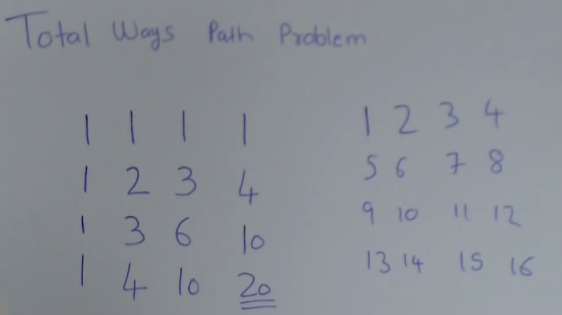 Total Ways Path Problem
1 1 1 1
1 2 3 4
1 3 6 10
1 4 10 20
1 2 3 4
5 6 7 8
9 10 11 12
13 14 15 16